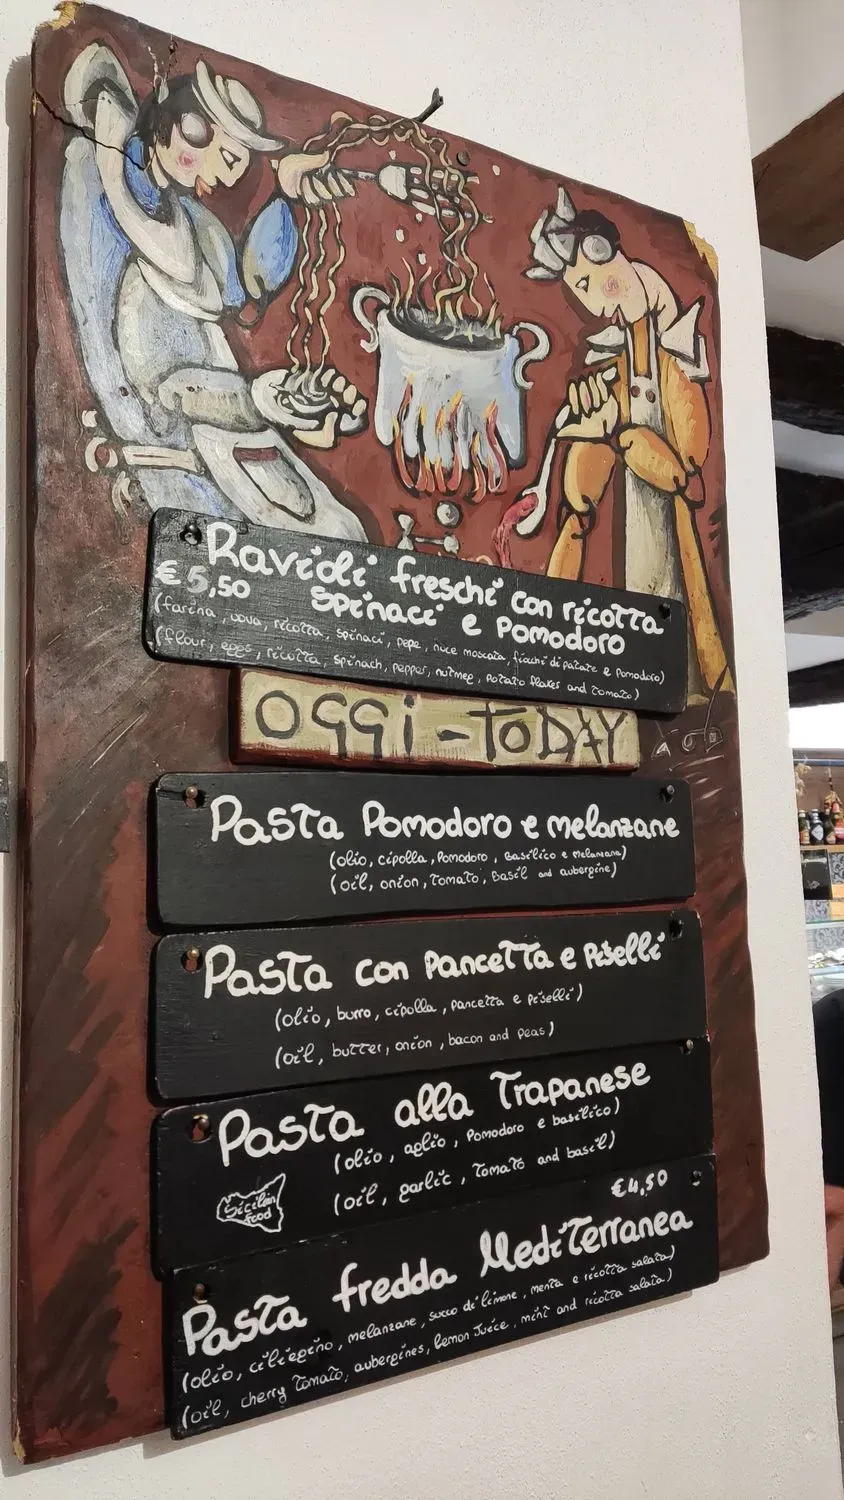 Ravioli freschi con ricotta
€5,50 spinaci e Pomodoro
(farina, uova, ricotta, spinaci, pepe, noce moscata, fiocchi di patate e Pomodoro)
(flour, eggs, ricotta, spinach, pepper, nutmeg, potato flakes and tomato)
OGGI - TODAY
Pasta Pomodoro e melanzane
(olio, cipolla, Pomodoro, Basilico e Melanzana)
(oil, onion, Tomato, Basil and aubergine)
Pasta con Pancetta e Piselli
(olio, burro, cipolla, pancetta e piselli)
(oil, butter, onion, bacon and peas)
Pasta alla Trapanese
(olio, aglio, Pomodoro e basilico)
(oil, garlic, Tomato and basil)
Sicilian
food
€4,50
Pasta fredda Mediterranea
(olio, ciliegino, melanzane, succo di limone, menta e ricotta salata)
(oil, cherry Tomato, aubergines, lemon Juice, mint and ricotta salata)